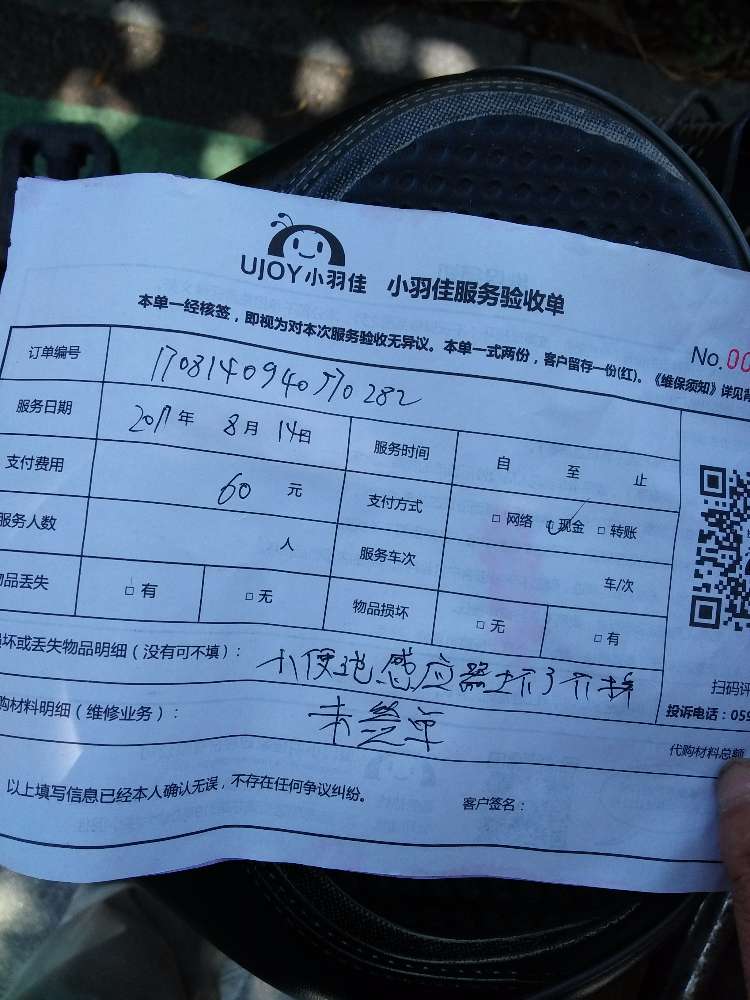 UJOY小羽佳 小羽佳服务验收单
本单一经核签，即视为对本次服务验收无异议。本单一式两份，客户留存一份(红)。《维保须知》详见背
No.00
订单编号 170814094070282
服务日期 2017年 8月 14日 服务时间 自 至 止
支付费用 60 元 支付方式 □网络 □现金 □转账
服务人数 人 服务车次 车/次
物品丢失 □有 □无 物品损坏 □无 □有
损坏或丢失物品明细（没有可不填）： 小便池感应器坏了
扫码评
投诉电话：059
购材料明细（维修业务）： 未
代购材料总额
以上填写信息已经本人确认无误，不存在任何争议纠纷。 客户签名：